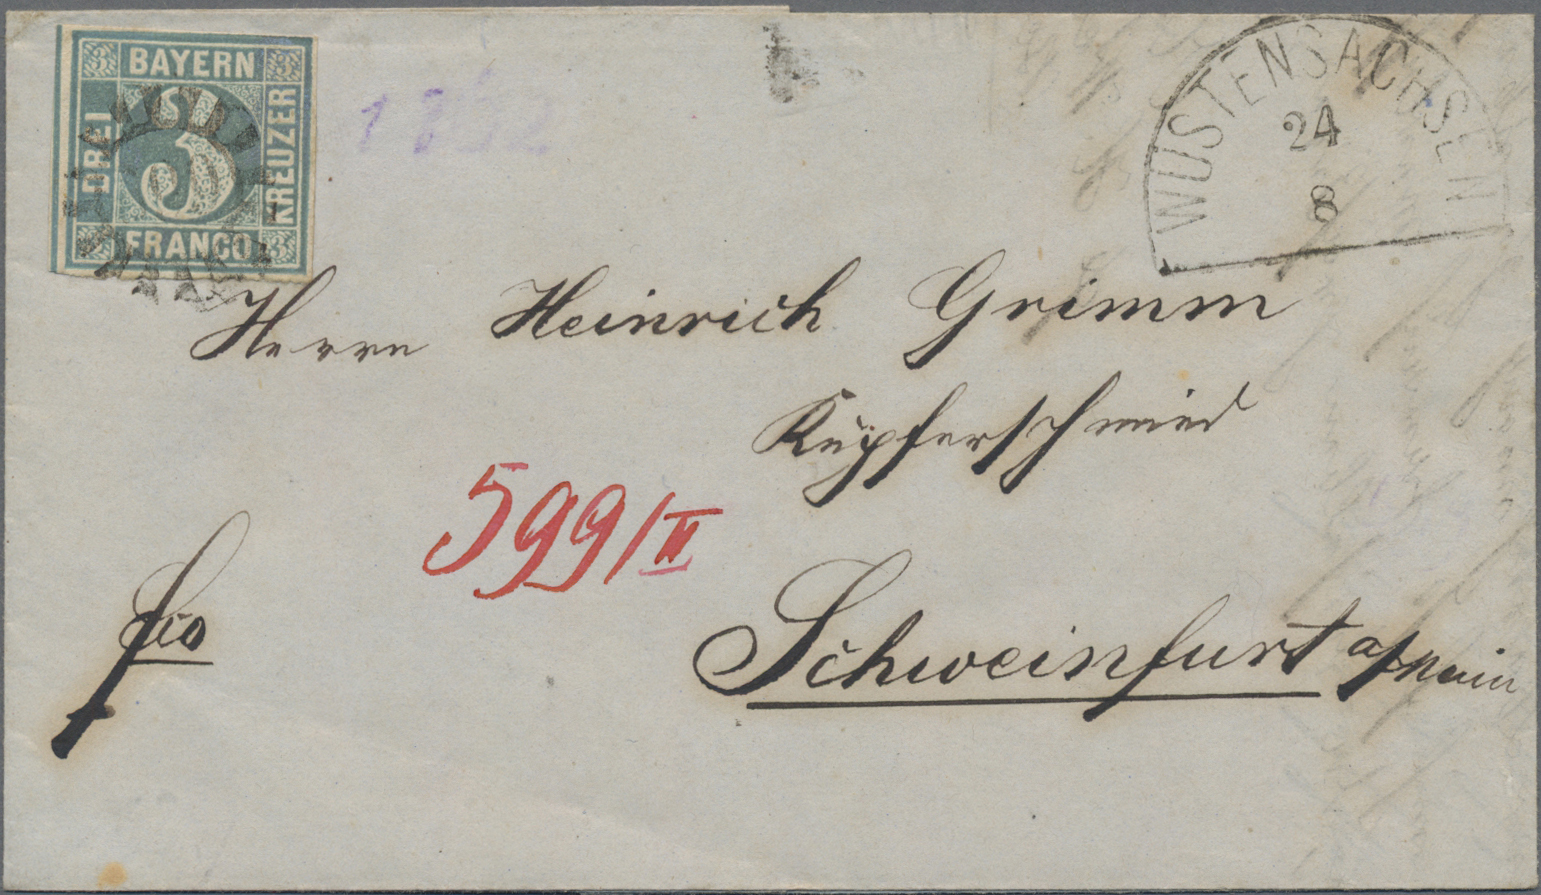 BAYERN
DREI
3
KREUZER
FRANCO
WÜSTENSACHSEN
24
8
Herrn Heinrich Grimm
Kupferschmied
599/II
fco
Schweinfurt a/Main